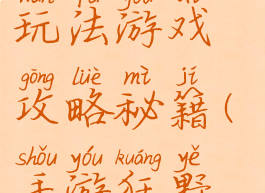 玩法游戏
gōng lüè mì jí
攻略秘籍(
shǒu yóu kuáng yě
手游狂野